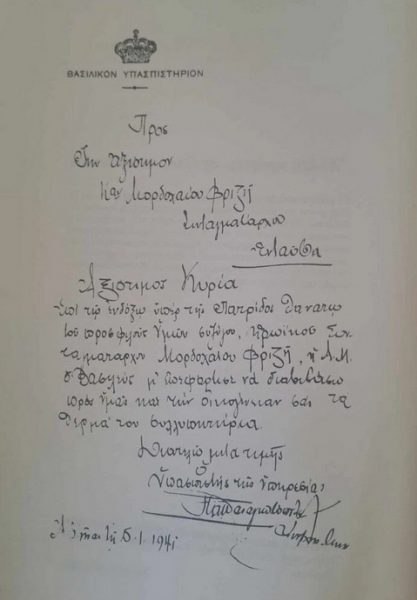 ΒΑΣΙΛΙΚΟΝ ΥΠΑΣΠΙΣΤΗΡΙΟΝ
Προς
Την Αξιοτιμον
Καν Μορδοχαίου Φριζή
Συνταγματάρχου
Ενταύθα
Αξιότιμος Κυρία
Επί τω ενδόξω υπέρ της Πατρίδος θανάτω
του προσφιλούς Υμών συζύγου, ηρωικού Συν
ταγματάρχου Μορδοχαίου Φριζή, η Α.Μ.
ο Βασιλεύς μ' να διαβιβάσω
προς Υμάς και την οικογένειαν σας τα
θερμά του συλλυπητήρια.
Διατελώ μετά τιμής
Ο
Υπασπιστής της υπηρεσίας
5.1.1941